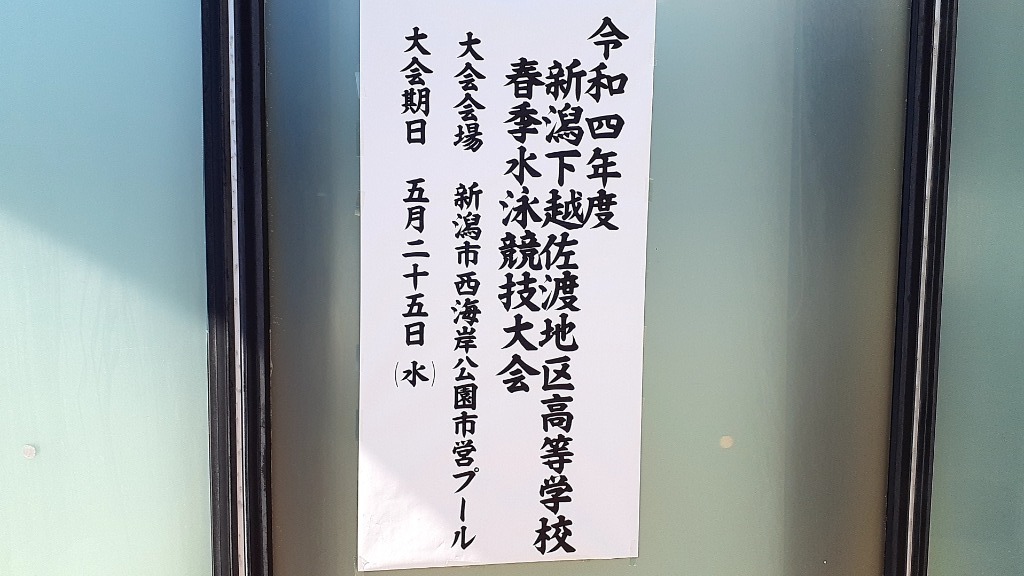 令和四年度
新潟下越佐渡地区高等学校
春季水泳競技大会
大会会場 新潟市西海岸公園市営プール
大会期日 五月二十五日(水)